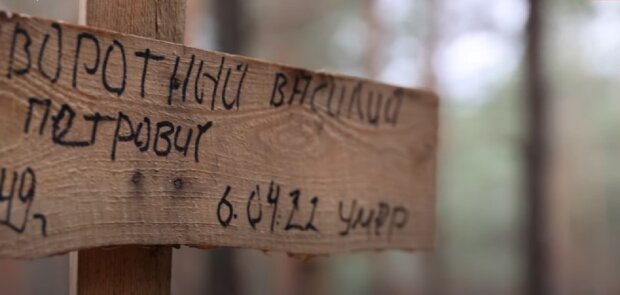 ВОРОТНЫЙ ВАСИЛИЙ
ПЕТРОВИЧ
49г 6.04.22 УМЕР